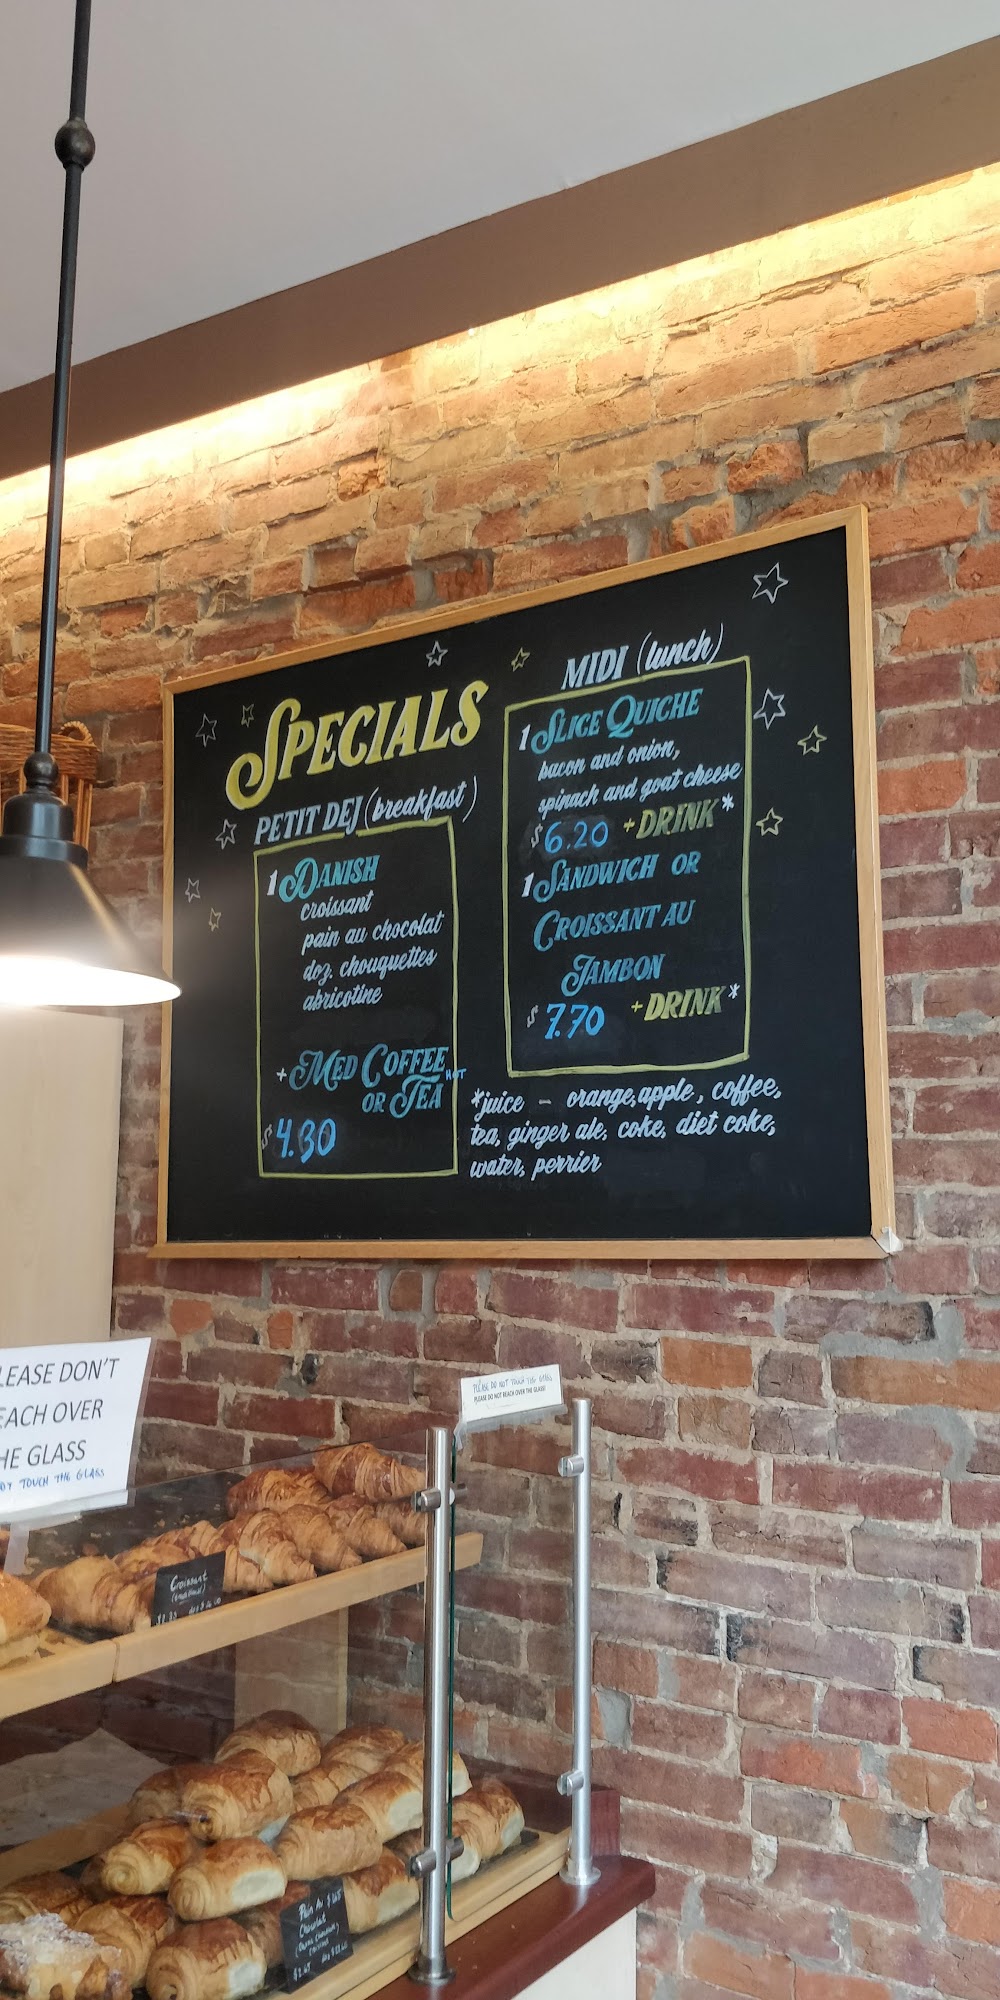 SPECIALS
PETIT DEJ (breakfast)
1 DANISH
croissant
pain au chocolat
doz. chouquettes
abricotine
+ MED COFFEE HOT
OR TEA
$ 4.30
MIDI (lunch)
1 SLICE QUICHE
bacon and onion,
spinach and goat cheese
$ 6.20 + DRINK*
1 SANDWICH OR
CROISSANT AU
JAMBON
$ 7.70 + DRINK*
*juice - orange, apple, coffee,
tea, ginger ale, coke, diet coke,
water, perrier
LEASE DON'T
EACH OVER
HE GLASS
TOUCH THE GLASS
PLEASE DO NOT TOUCH THE GLASS
PLEASE DO NOT REACH OVER THE GLASS
Croissant
Pain Au
Chocolat
$2.65